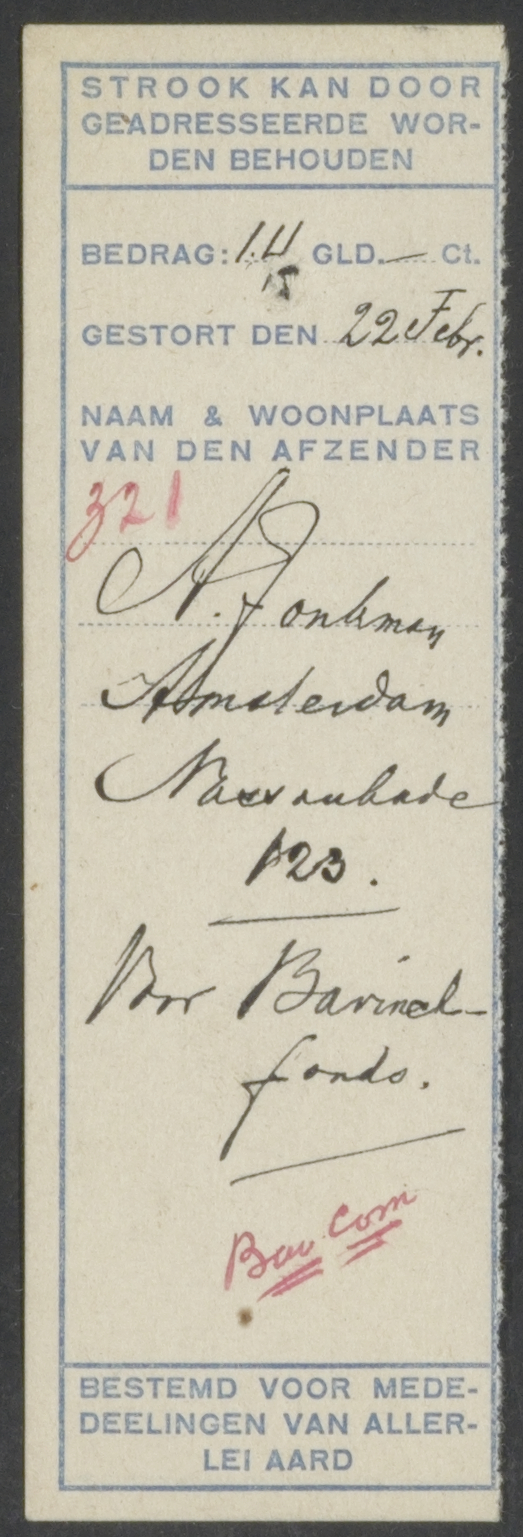 STROOK KAN DOOR
GEADRESSEERDE WOR-
DEN BEHOUDEN
BEDRAG: GLD. — Ct.
GESTORT DEN 22 Febr.
NAAM & WOONPLAATS
VAN DEN AFZENDER
321
N. Jonkman
Amsterdam
Nassaukade
123.
Voor Bavinck-
fonds.
Bav. Com
BESTEMD VOOR MEDE-
DEELINGEN VAN ALLER-
LEI AARD